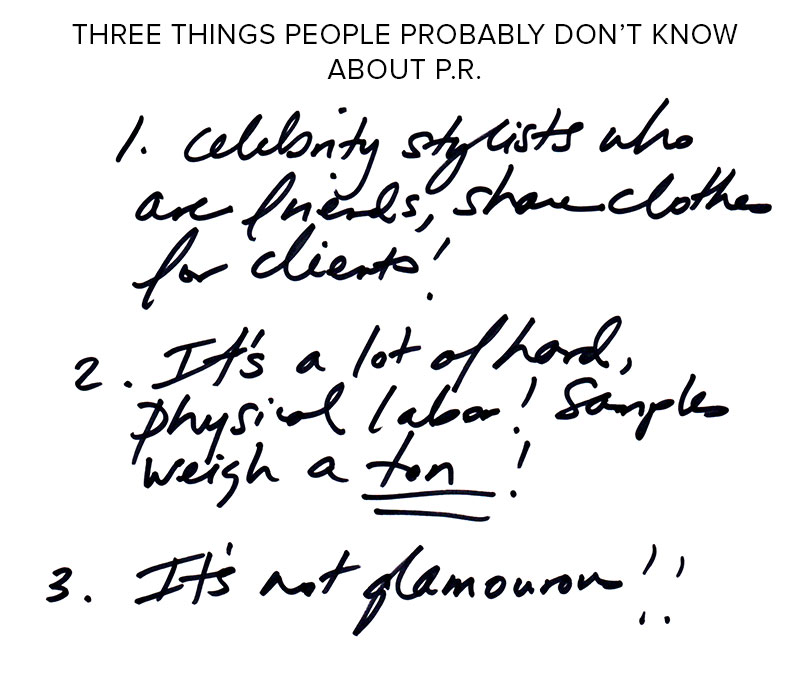 THREE THINGS PEOPLE PROBABLY DON'T KNOW
ABOUT P.R.
1. celebrity stylists who
are friends, share clothes
for clients!
2. It's a lot of hard,
physical labor! Samples
weigh a ton!
3. It's not glamourous!!